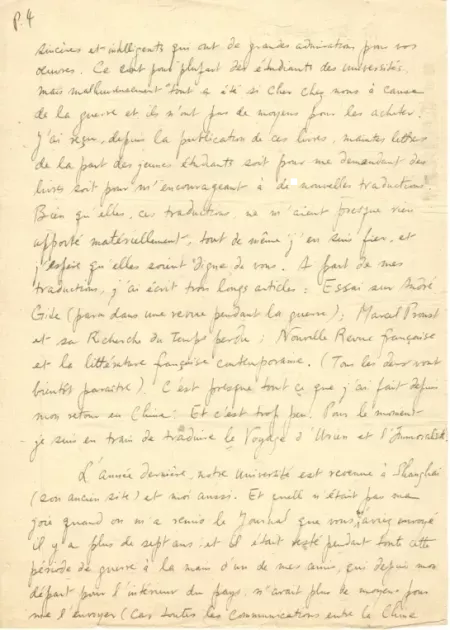 P. 4
sincères et intelligents qui ont de grandes admirations pour vos
oeuvres. Ce sont pour plupart des étudiants des universités.
mais malheureusement tout a été si cher chez nous à cause
de la guerre et ils n'ont pas de moyens pour les acheter.
J'ai reçu, depuis la publication de ces livres, maintes lettres
de la part des jeunes étudiants soit pour me demandant des
livres soit pour m'encourageant à de nouvelles traductions.
Bien qu'elles, ces traductions, ne m'aient presque rien
apporté matériellement, tout de même j'en suis fier, et
j'espère qu'elles soient digne de vous. A part de mes
traductions, j'ai écrit trois longs articles : Essai sur André
Gide (paru dans une revue pendant la guerre) ; Marcel Proust
et sa Recherche du Temps perdu ; Nouvelle Revue française
et la littérature française contemporaine. (Tous les deux vont
bientôt paraître). C'est presque tout ce que j'ai fait depuis
mon retour en Chine. Et c'est trop peu. Pour le moment
je suis en train de traduire le Voyage d'Urien et l'Immoraliste.
L'année dernière, notre université est revenue à Shanghai
(son ancien site) et moi aussi. Et quell n'était pas ma
joie quand on m'a remis le Journal que vous m'aviez envoyé
il y a plus de sept ans ; et il était resté pendant toute cette
période de guerre à la main d'un de mes amis, qui depuis mon
départ pour l'intérieur du pays, n'avait plus de moyens pour
me l'envoyer (car toutes les communications entre la Chine